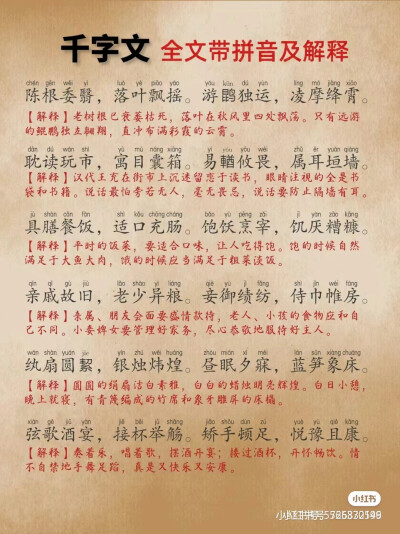 千字文 全文带拼音及解释
chén gēn wěi yì luò yè piāo yáo yóu kūn dú yùn líng mó jiàng xiāo
陈根委翳，落叶飘摇。游鹍独运，凌摩绛霄。
【解释】老树根已衰萎枯死，落叶在秋风里四处飘荡。只有远游
的鲲鹏独立翱翔，直冲布满彩霞的云霄。
dān dú wán shì yù mù náng xiāng yì yóu yōu wèi zhǔ ěr yuán qiáng
耽读玩市，寓目囊箱。易輶攸畏，属耳垣墙。
【解释】汉代王充在街市上沉迷留恋于读书，眼睛注视的全是书
袋和书籍。说话最怕旁若无人，毫无畏忌，说话要防止隔墙有耳。
jù shàn cān fàn shì kǒu chōng cháng bǎo yù pēng zǎi jī yàn zāo kāng
具膳餐饭，适口充肠。饱饫烹宰，饥厌糟糠。
【解释】平时的饭菜，要适合口味，让人吃得饱。饱的时候自然
满足于大鱼大肉，饿的时候应当满足于粗菜淡饭。
qīn qī gù jiù lǎo shào yì liáng qiè yù jì fǎng shì jīn wéi fáng
亲戚故旧，老少异粮。妾御绩纺，侍巾帷房。
【解释】亲属、朋友会面要盛情款待，老人、小孩的食物应和自
己不同。小妾婢女要管理好家务，尽心恭敬地服待好主人。
wán shàn yuán jié yín zhú wěi huáng zhòu mián xī mèi lán sǔn xiàng chuáng
纨扇圆絜，银烛炜煌。昼眠夕寐，蓝笋象床。
【解释】圆圆的绢扇洁白素雅，白白的蜡烛明亮辉煌。白日小憩，
晚上就寝，有青篾编成的竹席和象牙雕屏的床榻。
xián gē jiǔ yàn jiē bēi jǔ shāng jiǎo shǒu dùn zú yuè yù qiě kāng
弦歌酒宴，接杯举觞。矫手顿足，悦豫且康。
【解释】奏着乐，唱着歌，摆酒开宴；接过酒杯，开怀畅饮。情
不自禁地手舞足蹈，真是又快乐又安康。
小红书